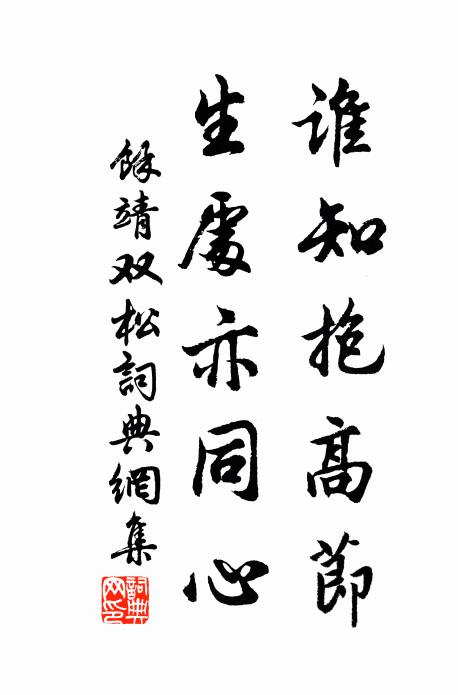 誰知抱高節
生處亦同心
餘靖双松詞典網集
詞典网印